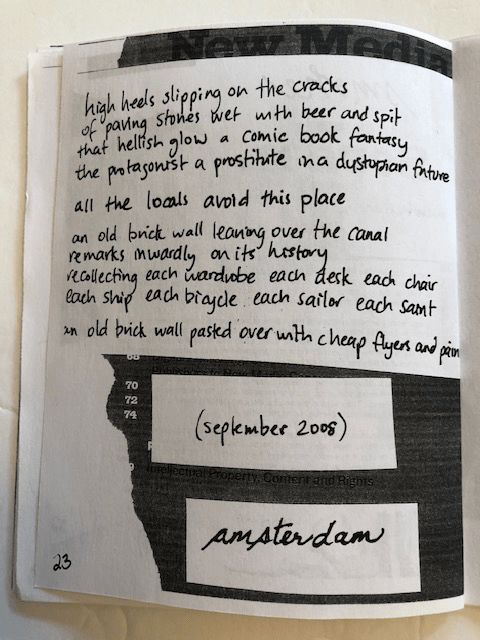 New Media
high heels slipping on the cracks
of paving stones wet with beer and spit
that hellish glow a comic book fantasy
the protagonist a prostitute in a dystopian future
all the locals avoid this place
an old brick wall leaning over the canal
remarks inwardly on its history
recollecting each wardrobe each desk each chair
each ship each bicycle each sailor each saint
an old brick wall pasted over with cheap flyers and pain
68
70
72
74
(september 2008)
Intellectual Property, Content and Rights
amsterdam
23